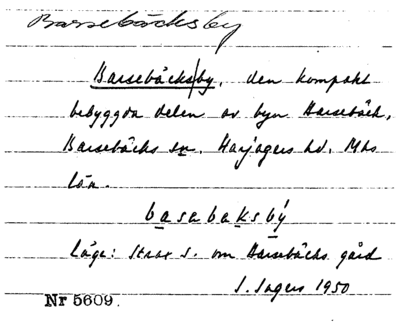 Barsebäcksby
Barsebäcksby, den kompakt
bebyggda delen av byn Barsebäck,
Barsebäcks sn. Harjagers hd. Mhs
län.
basabaksbý
Läge: Strax S. om Barsebäcks gård
S. Ingers 1950
Nr 5609.